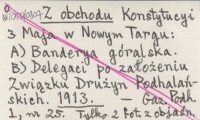 Z obchodu Konstytucyi
3 Maja w Nowym Targu:
A) Banderya góralska.
B) Delegaci po założeniu
Związku Drużyn Podhalań-
skich. 1913. — Gaz. Podh.
1, nr 25. Tylko 2 fot. z objaśn.